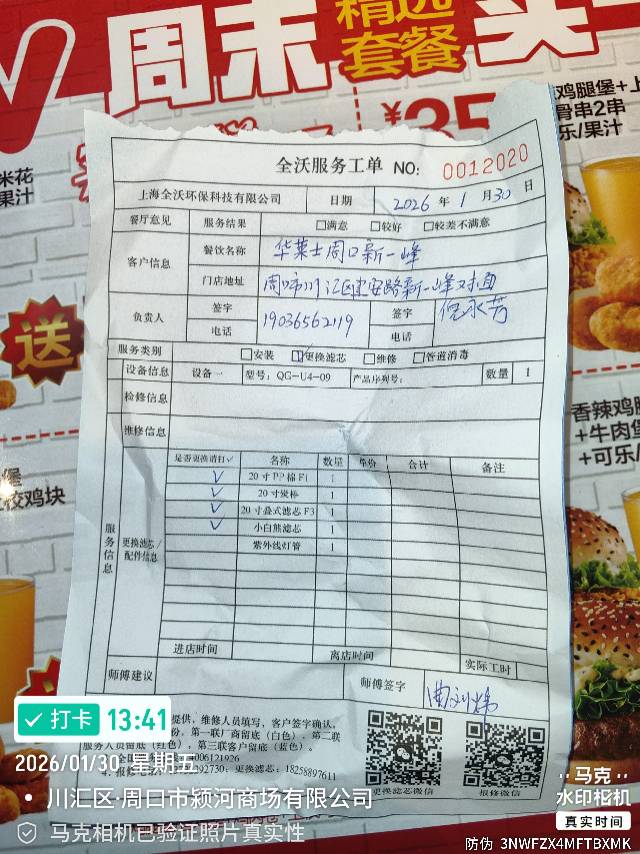 周末
精选
套餐
买一
¥35
鸡腿堡+上
骨串2串
乐/果汁
米花
果汁
送
全沃服务工单 NO: 0012020
上海全沃环保科技有限公司 日期 2026 年 1 月 30 日
餐厅意见 服务结果 □满意 □较好 □较差不满意
客户信息 餐饮名称 华莱士周口新一峰
门店地址 周口市川汇区建安路新一峰对面
负责人 签字 电话 19036562119 签字 电话 倪永芳
服务类别 □安装 ☑更换滤芯 □维修 □管道消毒
设备信息 设备一 型号: QG-U4-09 产品序列号: 数量 1
检修信息
维修信息
服务信息 更换滤芯/配件信息
是否更换请打√ 名称 数量 单价 合计 备注
√ 20寸PP棉F1 1
√ 20寸炭棒 1
√ 20寸叠式滤芯F3 1
√ 小白熊滤芯 1
紫外线灯管 1
进店时间 离店时间 实际工时
师傅建议 师傅签字
提供，维修人员填写，客户签字确认。
份，第一联厂商留底（白色）。第二联
服务人员留底（红色），第三联客户留底（蓝色）。
006121926
4. 报修电 292730; 更换滤芯: 18258897611
更换滤芯微信 报修微信
香辣鸡腿
+牛肉堡
+可乐/
堡
鸡块
打卡 13:41
2026/01/30 星期五
川汇区·周口市颍河商场有限公司
马克相机已验证照片真实性
马克
水印相机
真实时间
防伪 3NWFZX4MFTBXMK